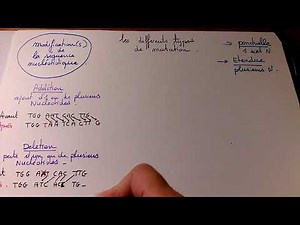 Modification(s)
de
la séquence
nucléotidique
les différents types
de mutation.
→ ponctuelle
1 seul N
→ Etendue
plusieurs N.
Addition
ajout d'1 ou de plusieurs
Nucléotides.
Avant TGG AAT CAC TTG
Après TGG TAA TCA CTT G
Deletion
perte d'1 ou de plusieurs
Nucléotides
TGG AAT CAC TTG
TGG ATC ACT TG_